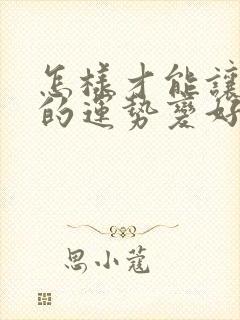 怎樣才能讓
的運勢變好
思小蔻